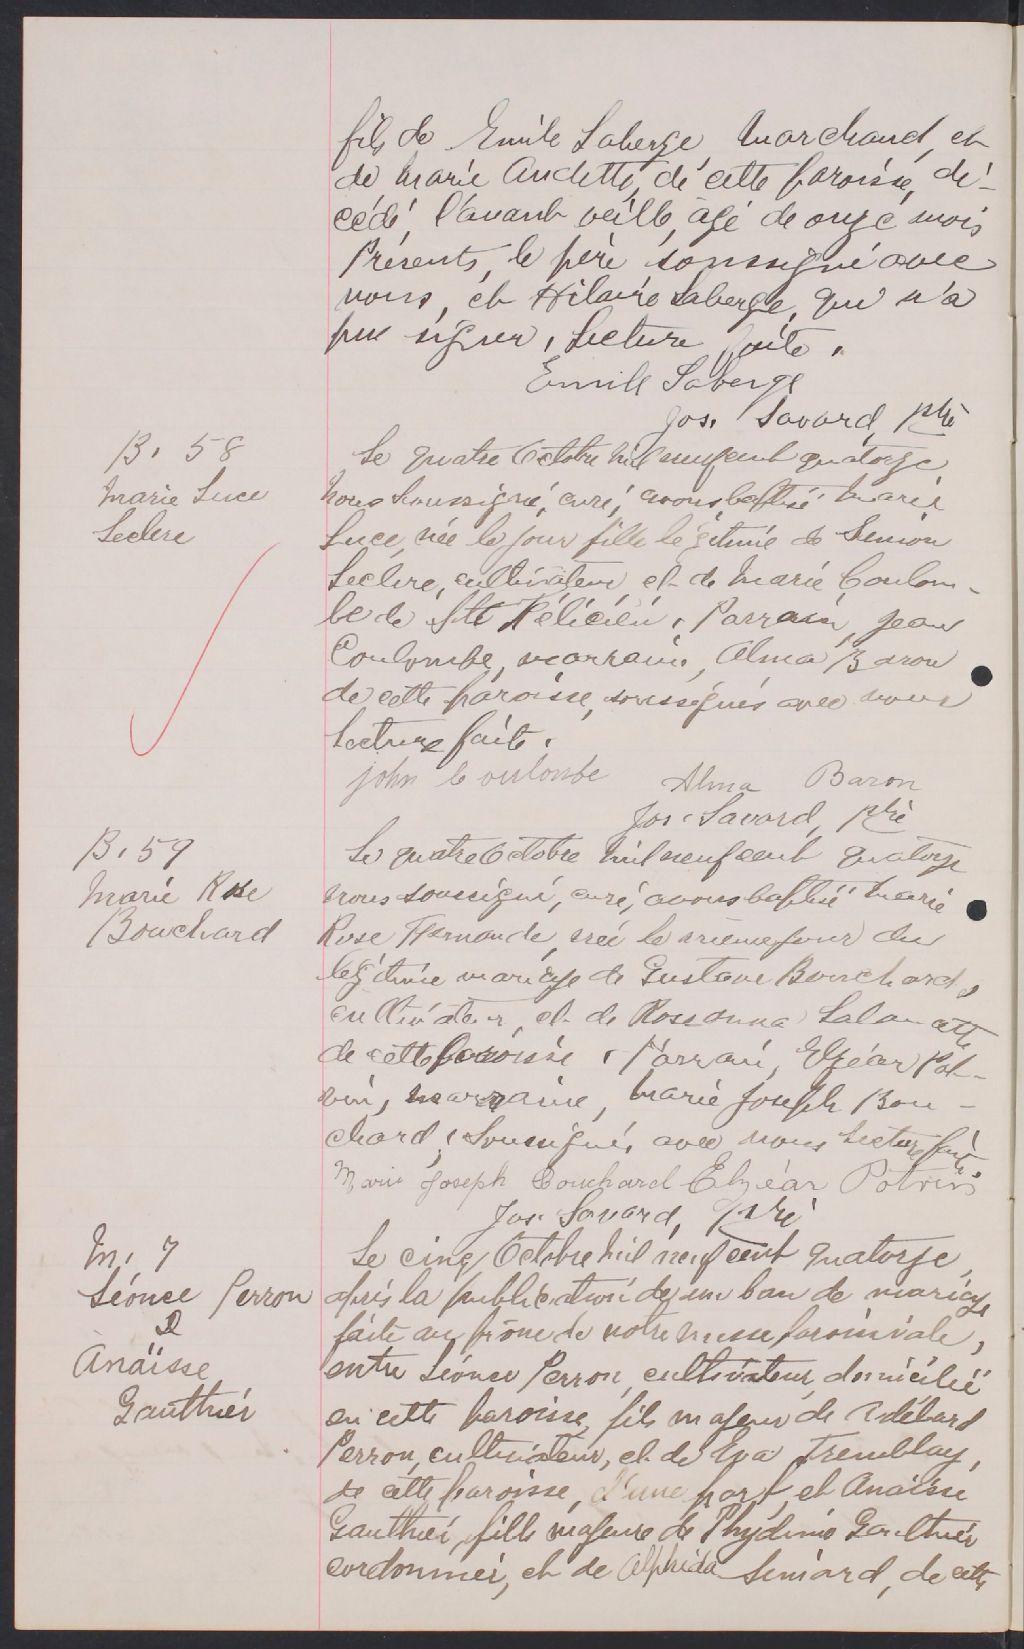 fils de Emile Laberge Marchand, et
de Marie Audette, de cette paroisse, dé-
cédé l'avant veille, âgé de onze mois
Présents, le père soussigné avec
nous, et Hilaire Laberge, qui n'a
pu signer. Lecture faite.
Emile Laberge
Jos. Savard, ptre
B. 58
Marie Luce
Leclerc
Le quatre Octobre mil neuf cent quatorze
Nous soussigné, curé, avons baptisé Marie
Luce, née le jour fille légitime de Simon
Leclerc, cultivateur et de Marie Coulom-
be de St Félicien. Parrain, Jean
Coulombe, marraine, Alma Baron
de cette paroisse, soussignés avec nous
Lecture faite.
John Coulombe Alma Baron
Jos. Savard, ptre
B. 59
Marie Rose
Bouchard
Le quatre Octobre mil neuf cent quatorze
nous soussigné, curé, avons baptisé Marie
Rose Fernande, née le même jour du
légitime mariage de Gustave Bouchard,
cultivateur, et de Rossanna
de cette paroisse. Parrain, Elzéar Pot-
vin, marraine, Marie Joseph Bou-
chard, soussignés avec nous Lecture faite.
Marie Joseph Bouchard Elzéar Potvin
Jos. Savard, ptre
M. 7
Léonce Perron
&
Anaïsse
Gauthier
Le cinq Octobre mil neuf cent quatorze,
après la publication de un ban de mariage
faite au prône de notre messe paroissiale,
entre Léonce Perron, cultivateur, domicilié
en cette paroisse, fils majeur de Adélard
Perron, cultivateur, et de Eva Tremblay,
de cette paroisse, d'une part, et Anaïsse
Gauthier, fille majeure de Phydime Gauthier
cordonnier, et de Alphéda Simard, de cette